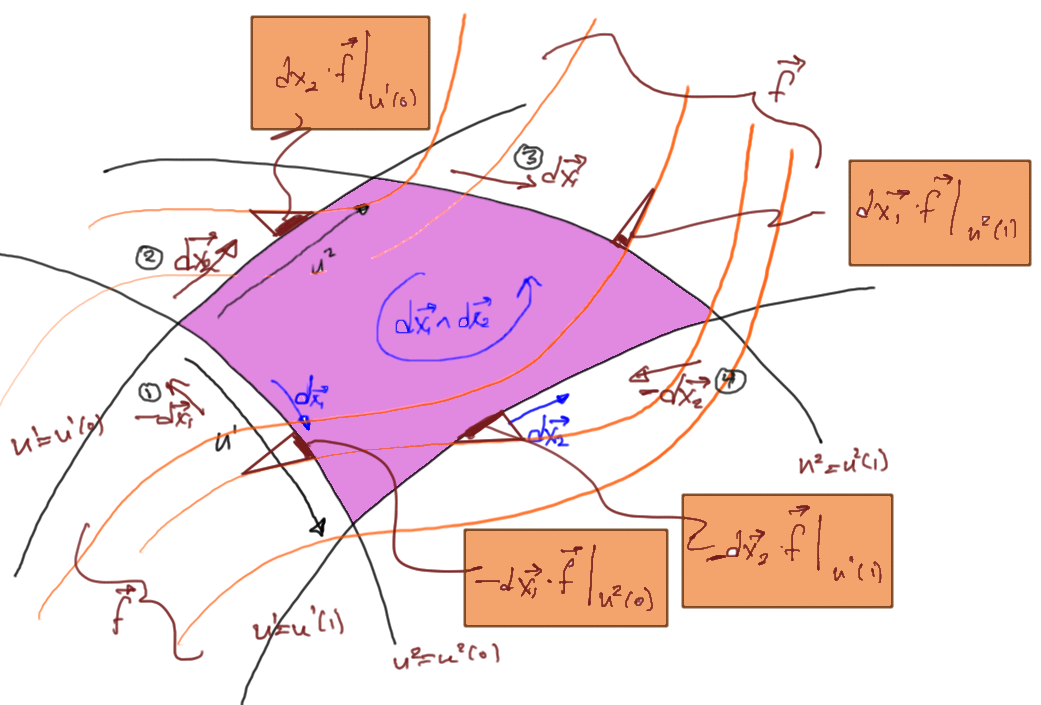 dx₂ · f⃗ |u¹(0)
f⃗
③ dx⃗₁
dx⃗₁ · f⃗ |u²(1)
② dx⃗₂
u²
dx⃗₁ ∧ dx⃗₂
① −dx⃗₁
dx⃗₁
−dx⃗₂ ④
u¹ = u¹(0)
u¹
dx⃗₂
u² = u²(1)
−dx⃗₂ · f⃗ |u¹(1)
−dx⃗₁ · f⃗ |u²(0)
f⃗
u¹ = u¹(1)
u² = u²(0)